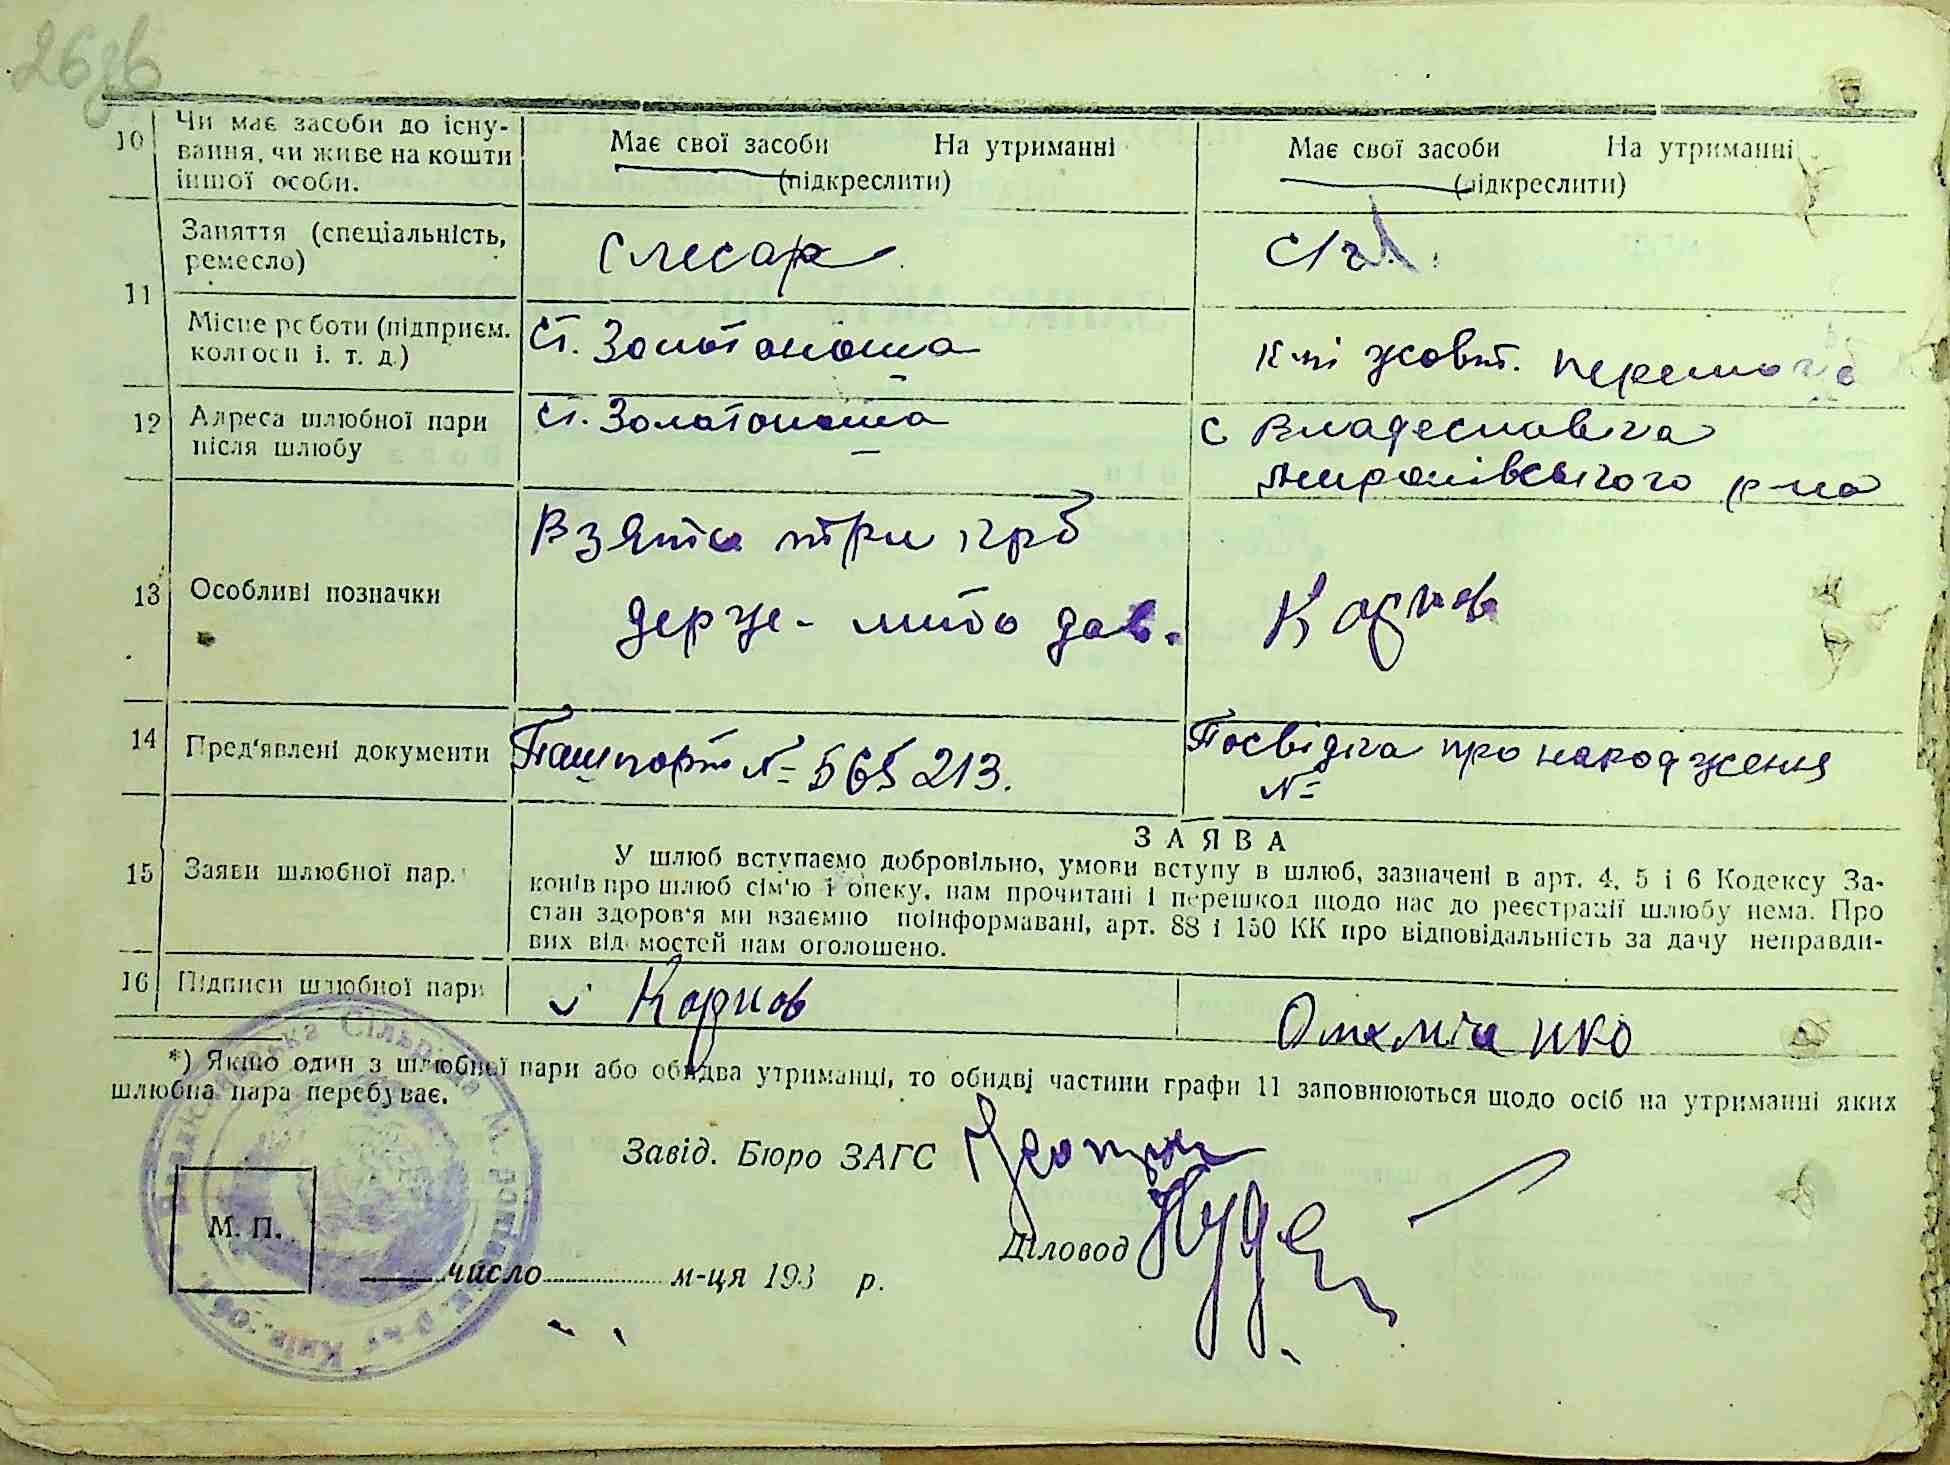 26зв
10 Чи має засоби до існу-
вання, чи живе на кошти
іншої особи.
Має свої засоби На утриманні
(підкреслити)
Має свої засоби На утриманні
(підкреслити)
11
Заняття (спеціальність,
ремесло)
Слесар
С/г.
Місце роботи (підприєм.
колгосп і. т. д.)
ст. Золотоноша
к-пі жовт. перемога
12 Адреса шлюбної пари
після шлюбу
ст. Золотоноша
с Владеславка
Миронівського р-на
13 Особливі позначки
Взято три крб
держ- мито
14 Пред'явлені документи
Пашпорт № 565213.
Посвідка про народження
№
ЗАЯВА
15 Заяви шлюбної пар.
У шлюб вступаємо добровільно, умови вступу в шлюб, зазначені в арт. 4, 5 і 6 Кодексу За-
конів про шлюб сім'ю і опеку, нам прочитані і перешкод щодо нас до реєстрації шлюбу нема. Про
стан здоров'я ми взаємно поінформавані, арт. 88 і 150 КК про відповідальність за дачу неправди-
вих відомостей нам оголошено.
16 Підписи шлюбної пари
*) Якщо один з шлюбної пари або обидва утриманці, то обидві частини графи 11 заповнюються щодо осіб на утриманні яких
шлюбна пара перебуває.
Завід. Бюро ЗАГС
Діловод
М. П.
число м-ця 193 р.